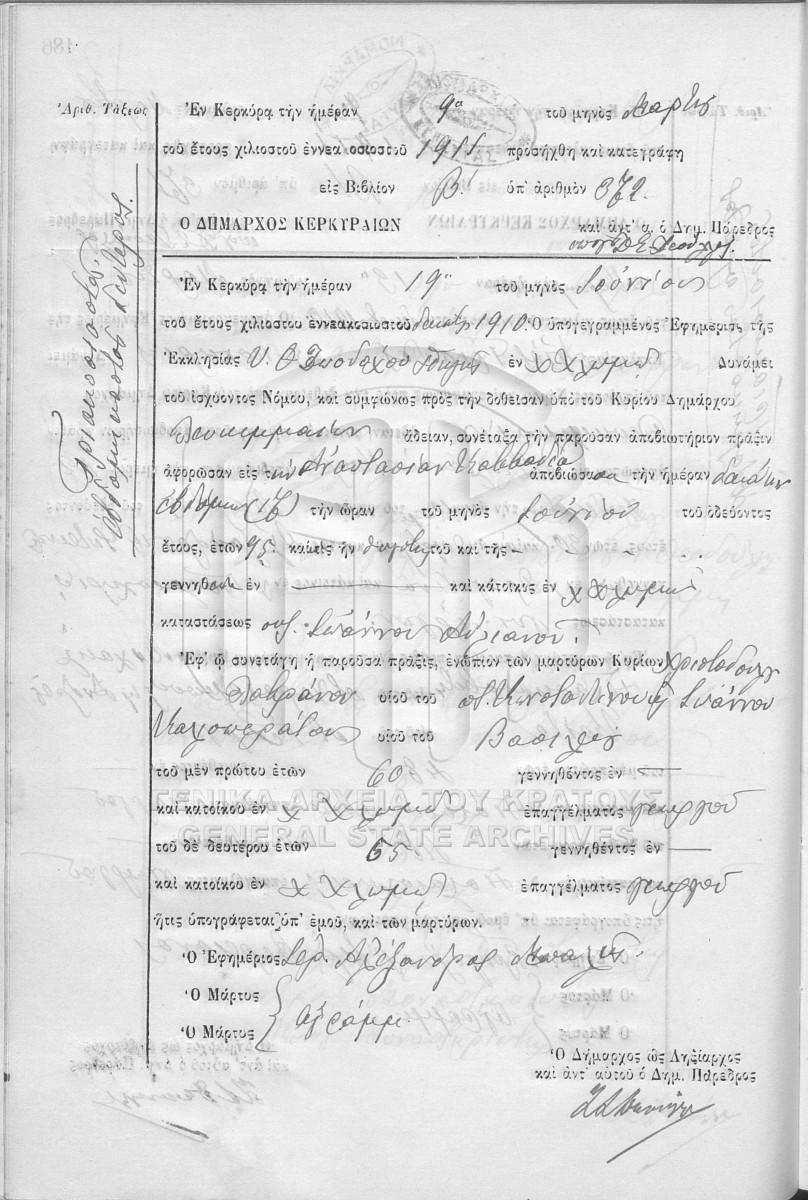 Ἀριθ. Τάξεως
Τριακοσιοστὸς
ἑβδομηκοστὸς δεύτερος.
Ἐν Κερκύρᾳ τὴν ἡμέραν 9η τοῦ μηνὸς Μαρτίου
τοῦ ἔτους χιλιοστοῦ ἐννεα οσιοστοῦ 1911 προσήχθη καὶ κατεγράφη
εἰς Βιβλίον Β΄. ὑπ' ἀριθμὸν 372.
Ο ΔΗΜΑΡΧΟΣ ΚΕΡΚΥΡΑΙΩΝ καὶ ἀντ' α. ὁ Δημ. Πάρεδρος
Ἐν Κερκύρᾳ τὴν ἡμέραν 19ην τοῦ μηνὸς Ἰουνίου
τοῦ ἔτους χιλιοστοῦ ἐννεακοσιοστοῦ δεκάτου 1910 Ὁ ὑπογεγραμμένος Ἐφημέριος τῆς
Ἐκκλησίας Υ. Θ. ἐν χ Χλωμοῦ Δυνάμει
τοῦ ἰσχύοντος Νόμου, καὶ συμφώνως πρὸς τὴν δοθεῖσαν ὑπὸ τοῦ Κυρίου Δημάρχου
Λευκιμμαίων ἄδειαν, συνέταξα τὴν παροῦσαν ἀποβιωτήριον πρᾶξιν
ἀφορῶσαν εἰς τὴν Ἀναστασίαν Καββαδία ἀποβιώσασα τὴν ἡμέραν δεκάτην
ἑβδόμην (17) τὴν ὥραν τοῦ μηνὸς Ἰουνίου τοῦ ὁδεύοντος
ἔτους, ἐτῶν 95. καὶ εἰς ἣν τοῦ καὶ τῆς
γεννηθεῖσα ἐν — καὶ κάτοικος ἐν χ Χλωμοῦ
καταστάσεως συζ. Ἰωάννου Αὐλιανοῦ.
Ἐφ' ᾧ συνετάγη ἡ παροῦσα πρᾶξις, ἐνώπιον τῶν μαρτύρων Κυρίων Χριστοδούλου
υἱοῦ τοῦ ποτ. Κωνσταντίνου ἢ Ἰωάννου
υἱοῦ τοῦ Βασιλείου
τοῦ μὲν πρώτου ἐτῶν 60 γεννηθέντος ἐν —
ΓΕΝΙΚΑ ΑΡΧΕΙΑ ΤΟΥ ΚΡΑΤΟΥΣ
καὶ κατοίκου ἐν χ Χλωμοῦ ἐπαγγέλματος γεωργοῦ
GENERAL STATE ARCHIVES
τοῦ δὲ δευτέρου ἐτῶν 65. γεννηθέντος ἐν —
καὶ κατοίκου ἐν χ Χλωμοῦ ἐπαγγέλματος γεωργοῦ
ἥτις ὑπογράφεται ὑπ' ἐμοῦ, καὶ τῶν μαρτύρων.
Ὁ Ἐφημέριος Ἱερ. Ἀλέξανδρος
Ὁ Μάρτυς
Ὁ Μάρτυς
ἀγράμμ.
Ὁ Δήμαρχος ὡς Ληξίαρχος
καὶ ἀντ' αὐτοῦ ὁ Δημ. Πάρεδρος